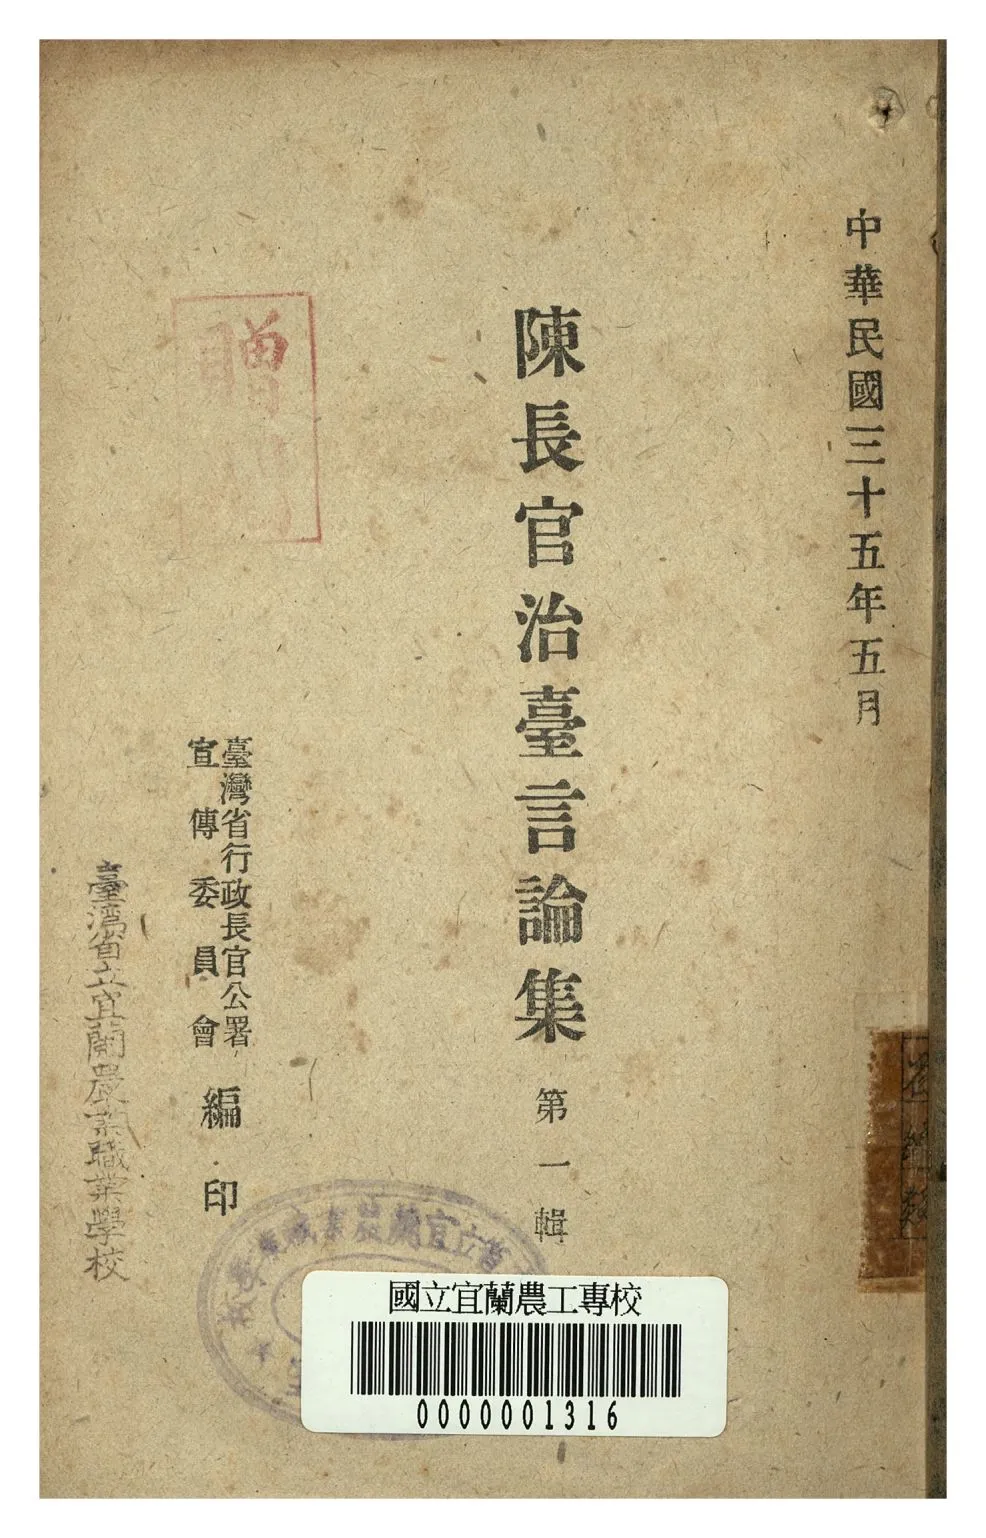 中華民國三十五年五月
陳長官治臺言論集 第一輯
臺灣省行政長官公署
宣傳委員會
編印
臺灣省立宜蘭農業職業學校
贈
國立宜蘭農工專校
0000001316